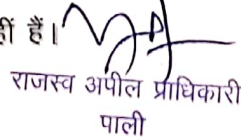 हैं।
राजस्व अपील प्राधिकारी
पाली